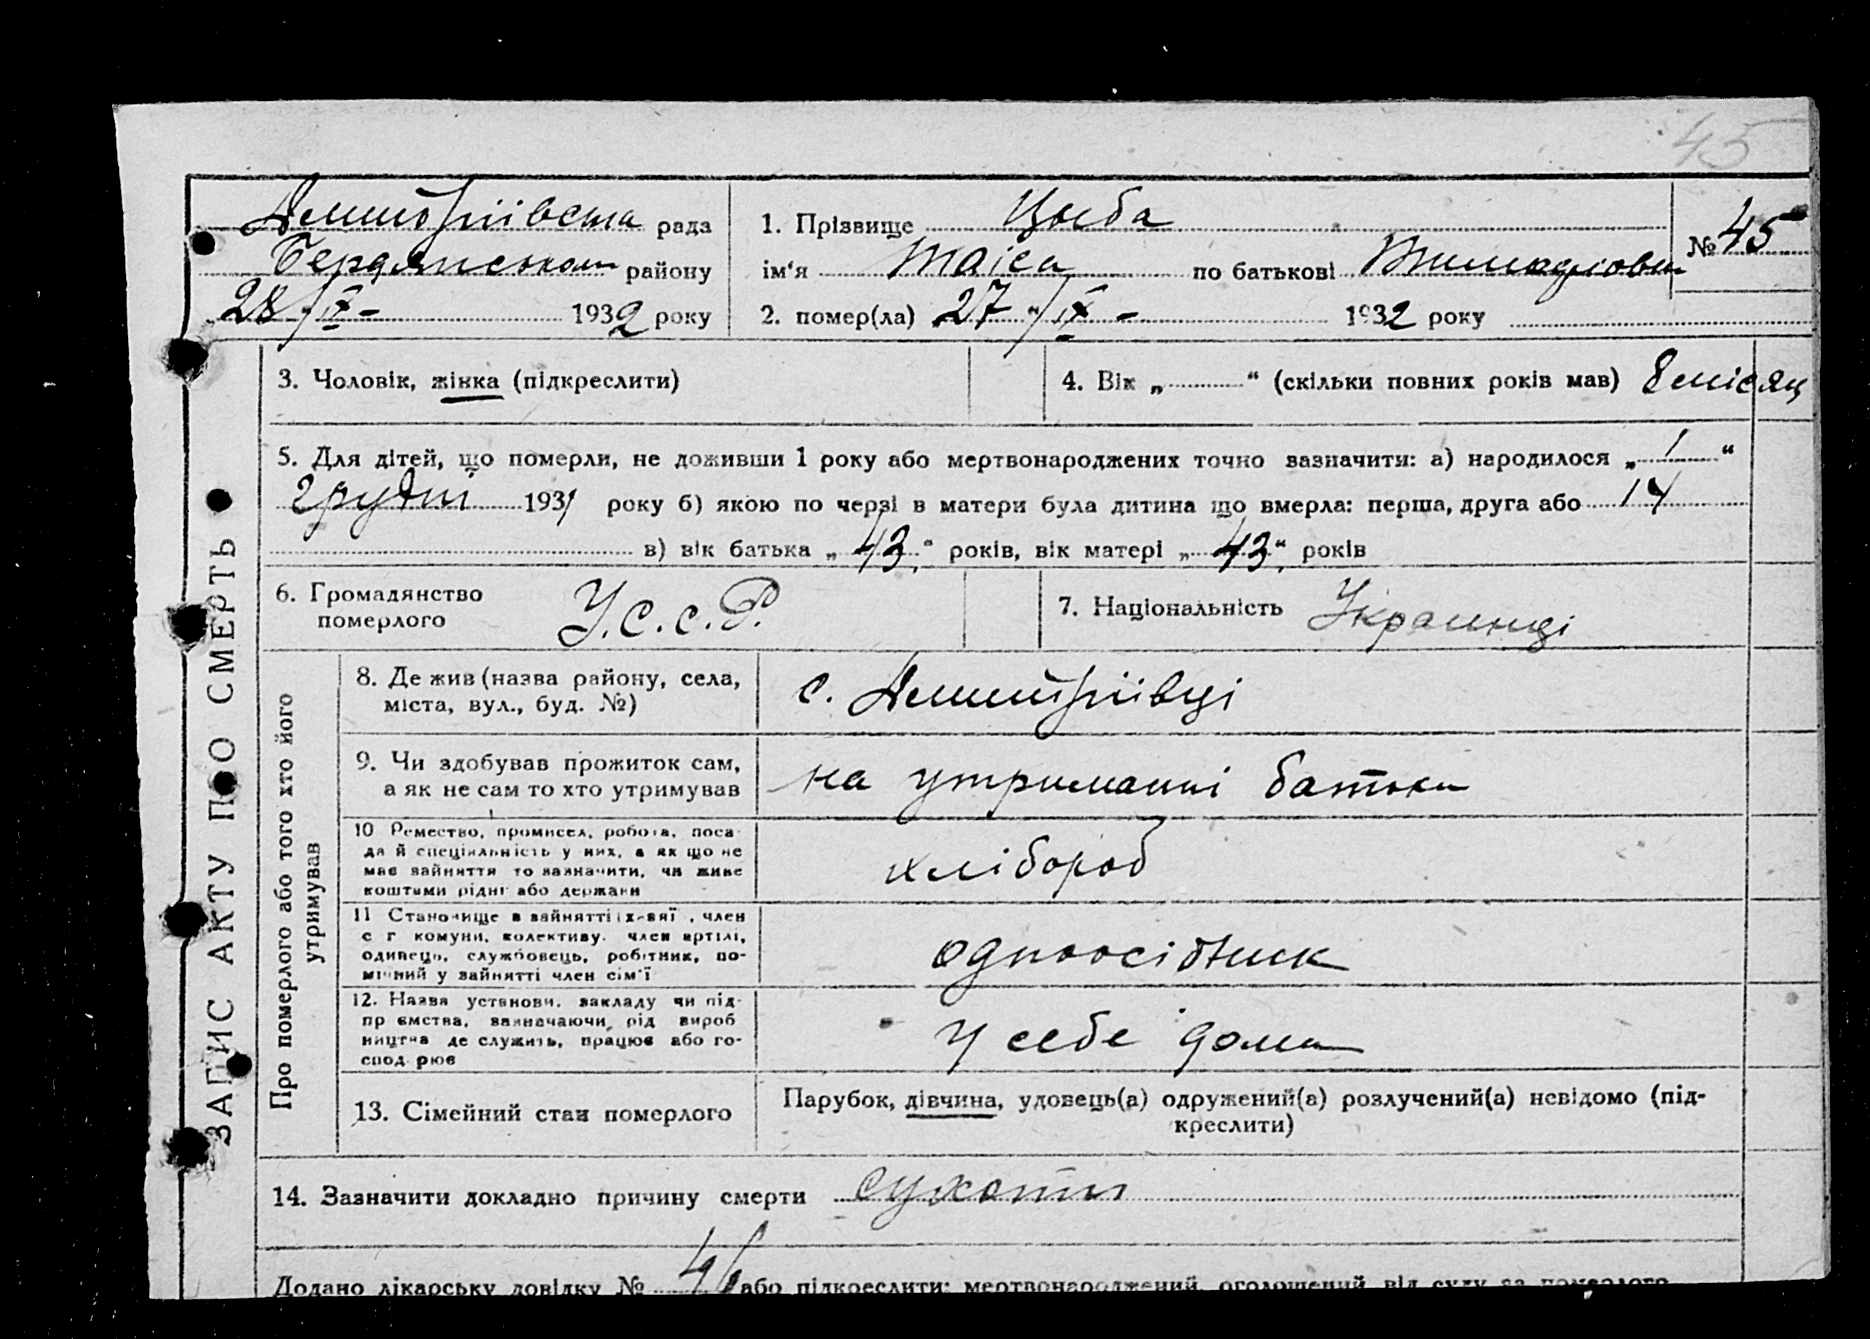 45
Дмитріівска рада
Бердянському району
28/IX- 1932 року
1. Прізвище Цыба
ім'я Таіса по батькові
2. помер(ла) 27 "/IX - 1932 року
№ 45
3. Чоловік, жінка (підкреслити)
4. Вік „ “ (скільки повних років мав) 8 місяц
5. Для дітей, що померли, не доживши 1 року або мертвонароджених точно зазначити: а) народилося „ 1 “
грудня 1931 року б) якою по черзі в матери була дитина що вмерла: перша, друга або 14
в) вік батька „ 43 “ років, вік матері „ 43 “ років
6. Громадянство
померлого
У.С.С.Р.
7. Національність Украинці
ЗАПИС АКТУ ПРО СМЕРТЬ
Про померлого або того хто його
утримував
8. Де жив (назва району, села,
міста, вул., буд. №)
с. Дмитріівці
9. Чи здобував прожиток сам,
а як не сам то хто утримував
на утриманні батька
10 Ремество, промисел, робота, поса-
да й спеціяльність у них, а як що не
має зайняття то зазначити, чи живе
коштами рідні або держави
хлібороб
11 Становище в зайнятті: х-вяї, член
с г комуни, колективу. член артілі,
одинець, службовець, робітник, по-
мічний у зайнятті член сім'ї
одноосібник
12. Назва установи, закладу чи під-
пр ємства, зазначаючи, рід вироб
ництва де служить, працює або го-
спод рює
у себе дома
13. Сімейний стан померлого
Парубок, дівчина, удовець(а) одружений(а) розлучений(а) невідомо (під-
креслити)
14. Зазначити докладно причину смерти сухоти
Додано лікарську довідку № або підкреслити: мертвонароджений, оголошений від суду за померлого